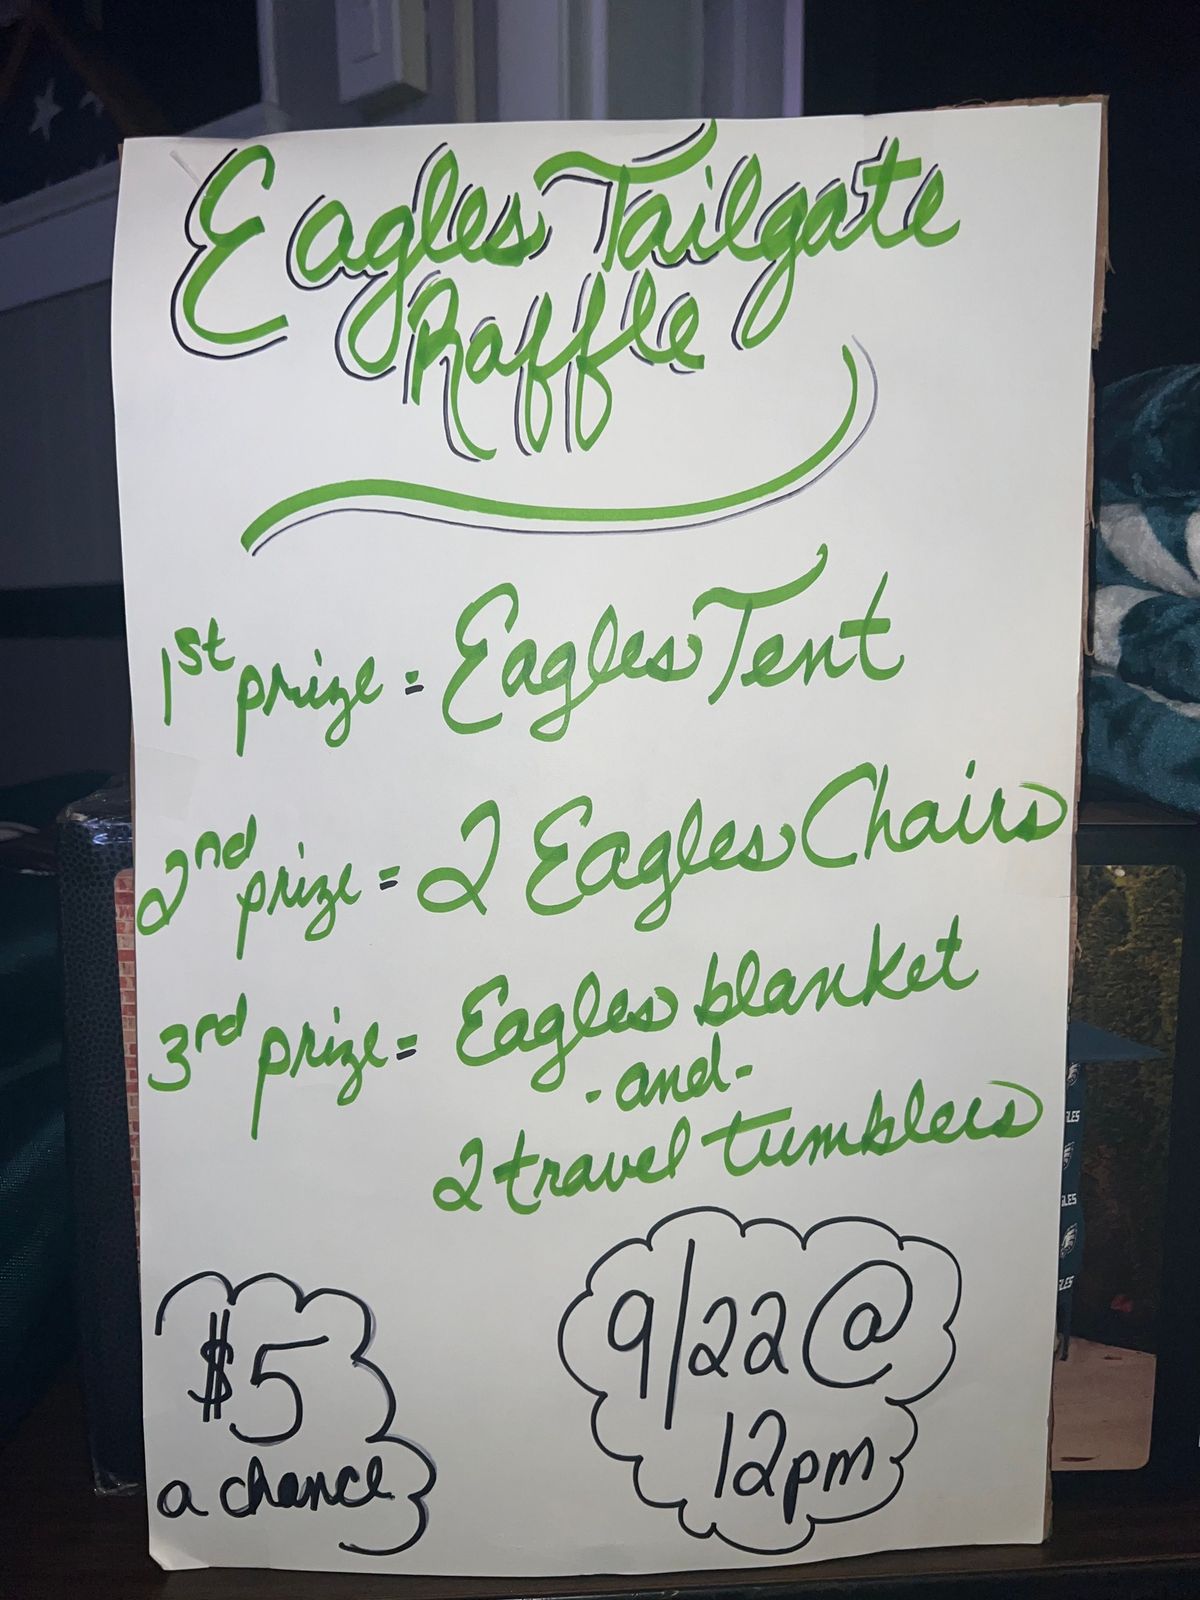 Eagles Tailgate
Raffle
1st prize = Eagles Tent
2nd prize = 2 Eagles Chairs
3rd prize = Eagles blanket
- and -
2 travel tumblers
$5
a chance
9/22 @
12pm